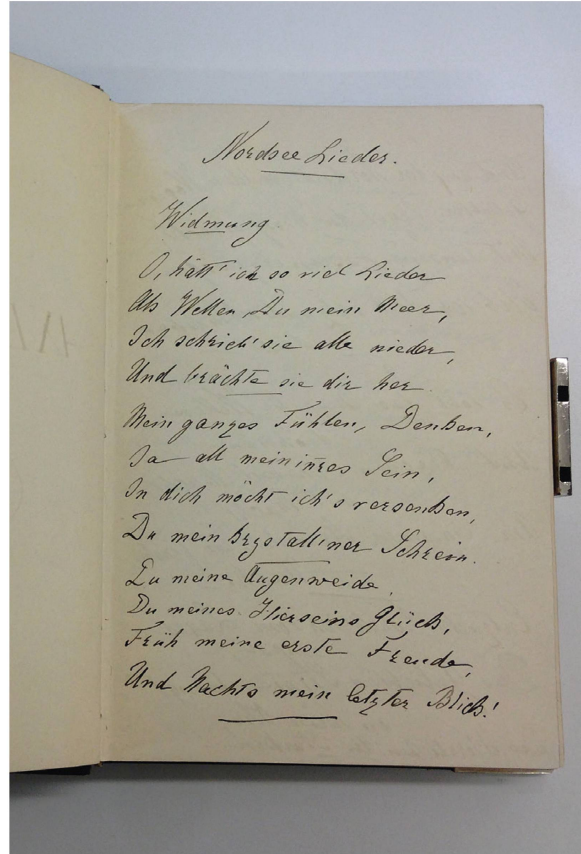 Nordsee Lieder.
Widmung
O, hätt' ich so viel Lieder
Als Wellen Du mein Meer,
Ich schrieb' sie alle nieder,
Und brächte sie dir her.
Mein ganzes Fühlen, Denken,
Ja all mein inn̄res Sein,
In dich möcht ich's versenken,
Du mein krystall'ner Schrein.
Du meine Augenweide,
Du meines Hierseins Glück,
Früh meine erste Freude,
Und Nachts mein letzter Blick!